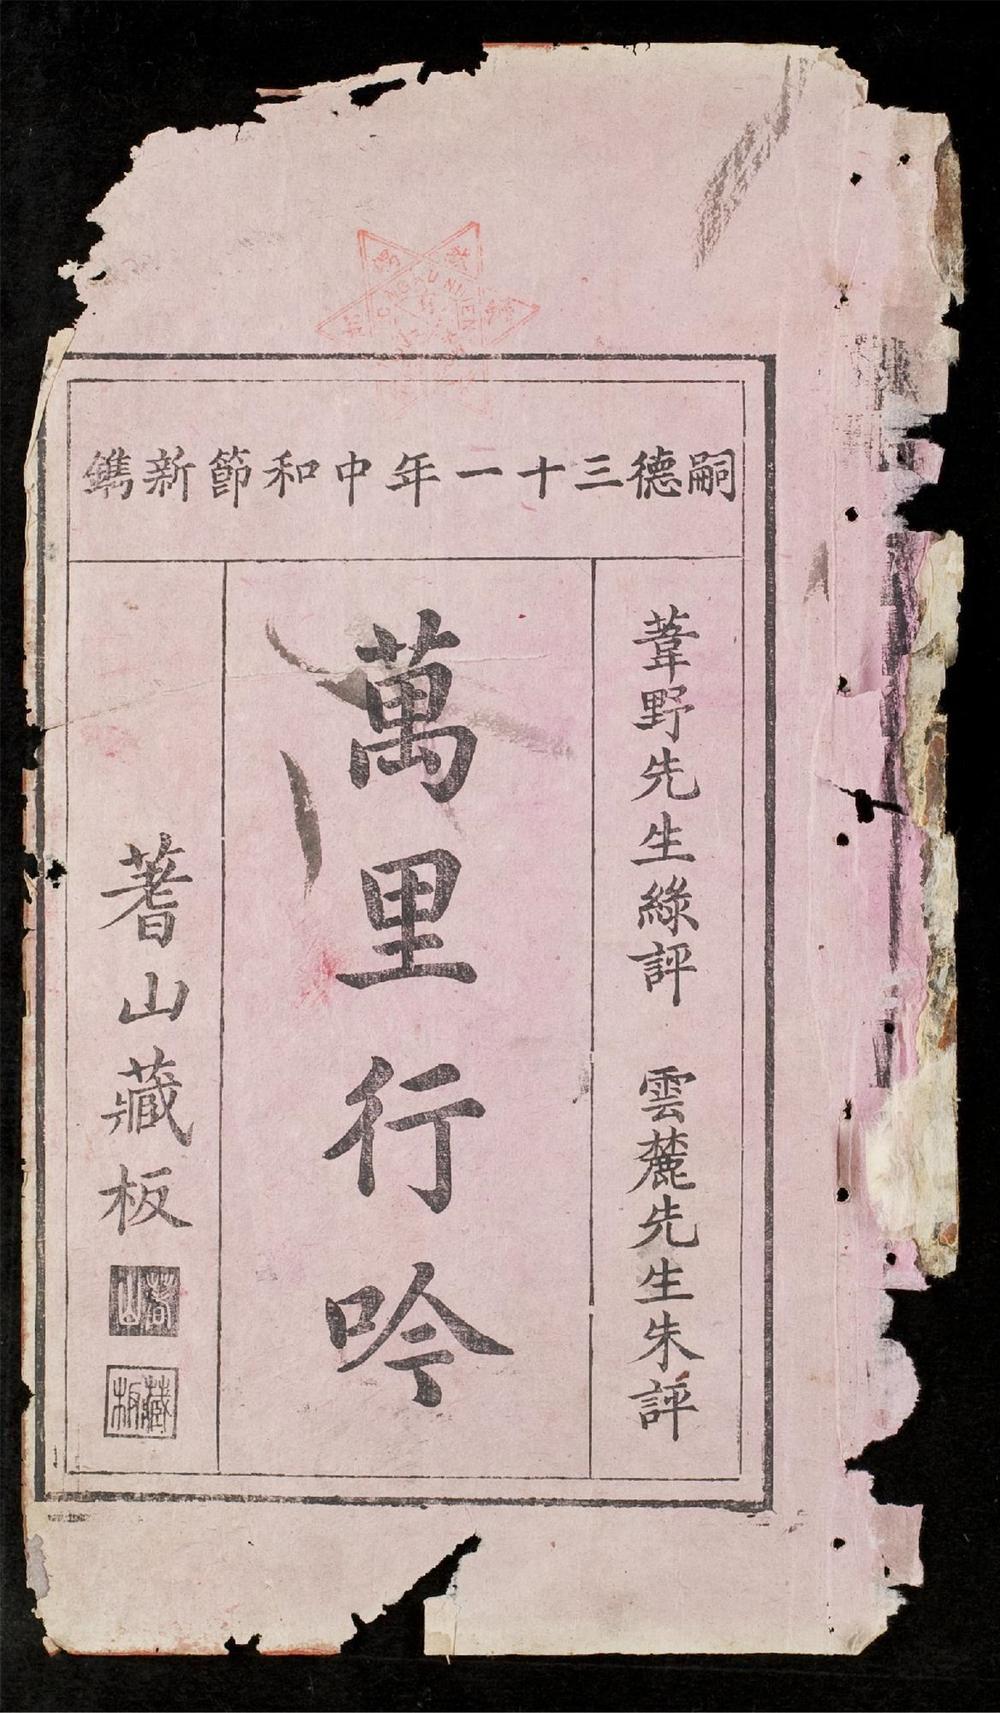 嗣德三十一年中和節新鐫
葦野先生綠評 雲麓先生朱評
萬里行吟
蓍山藏板
蓍山
藏板